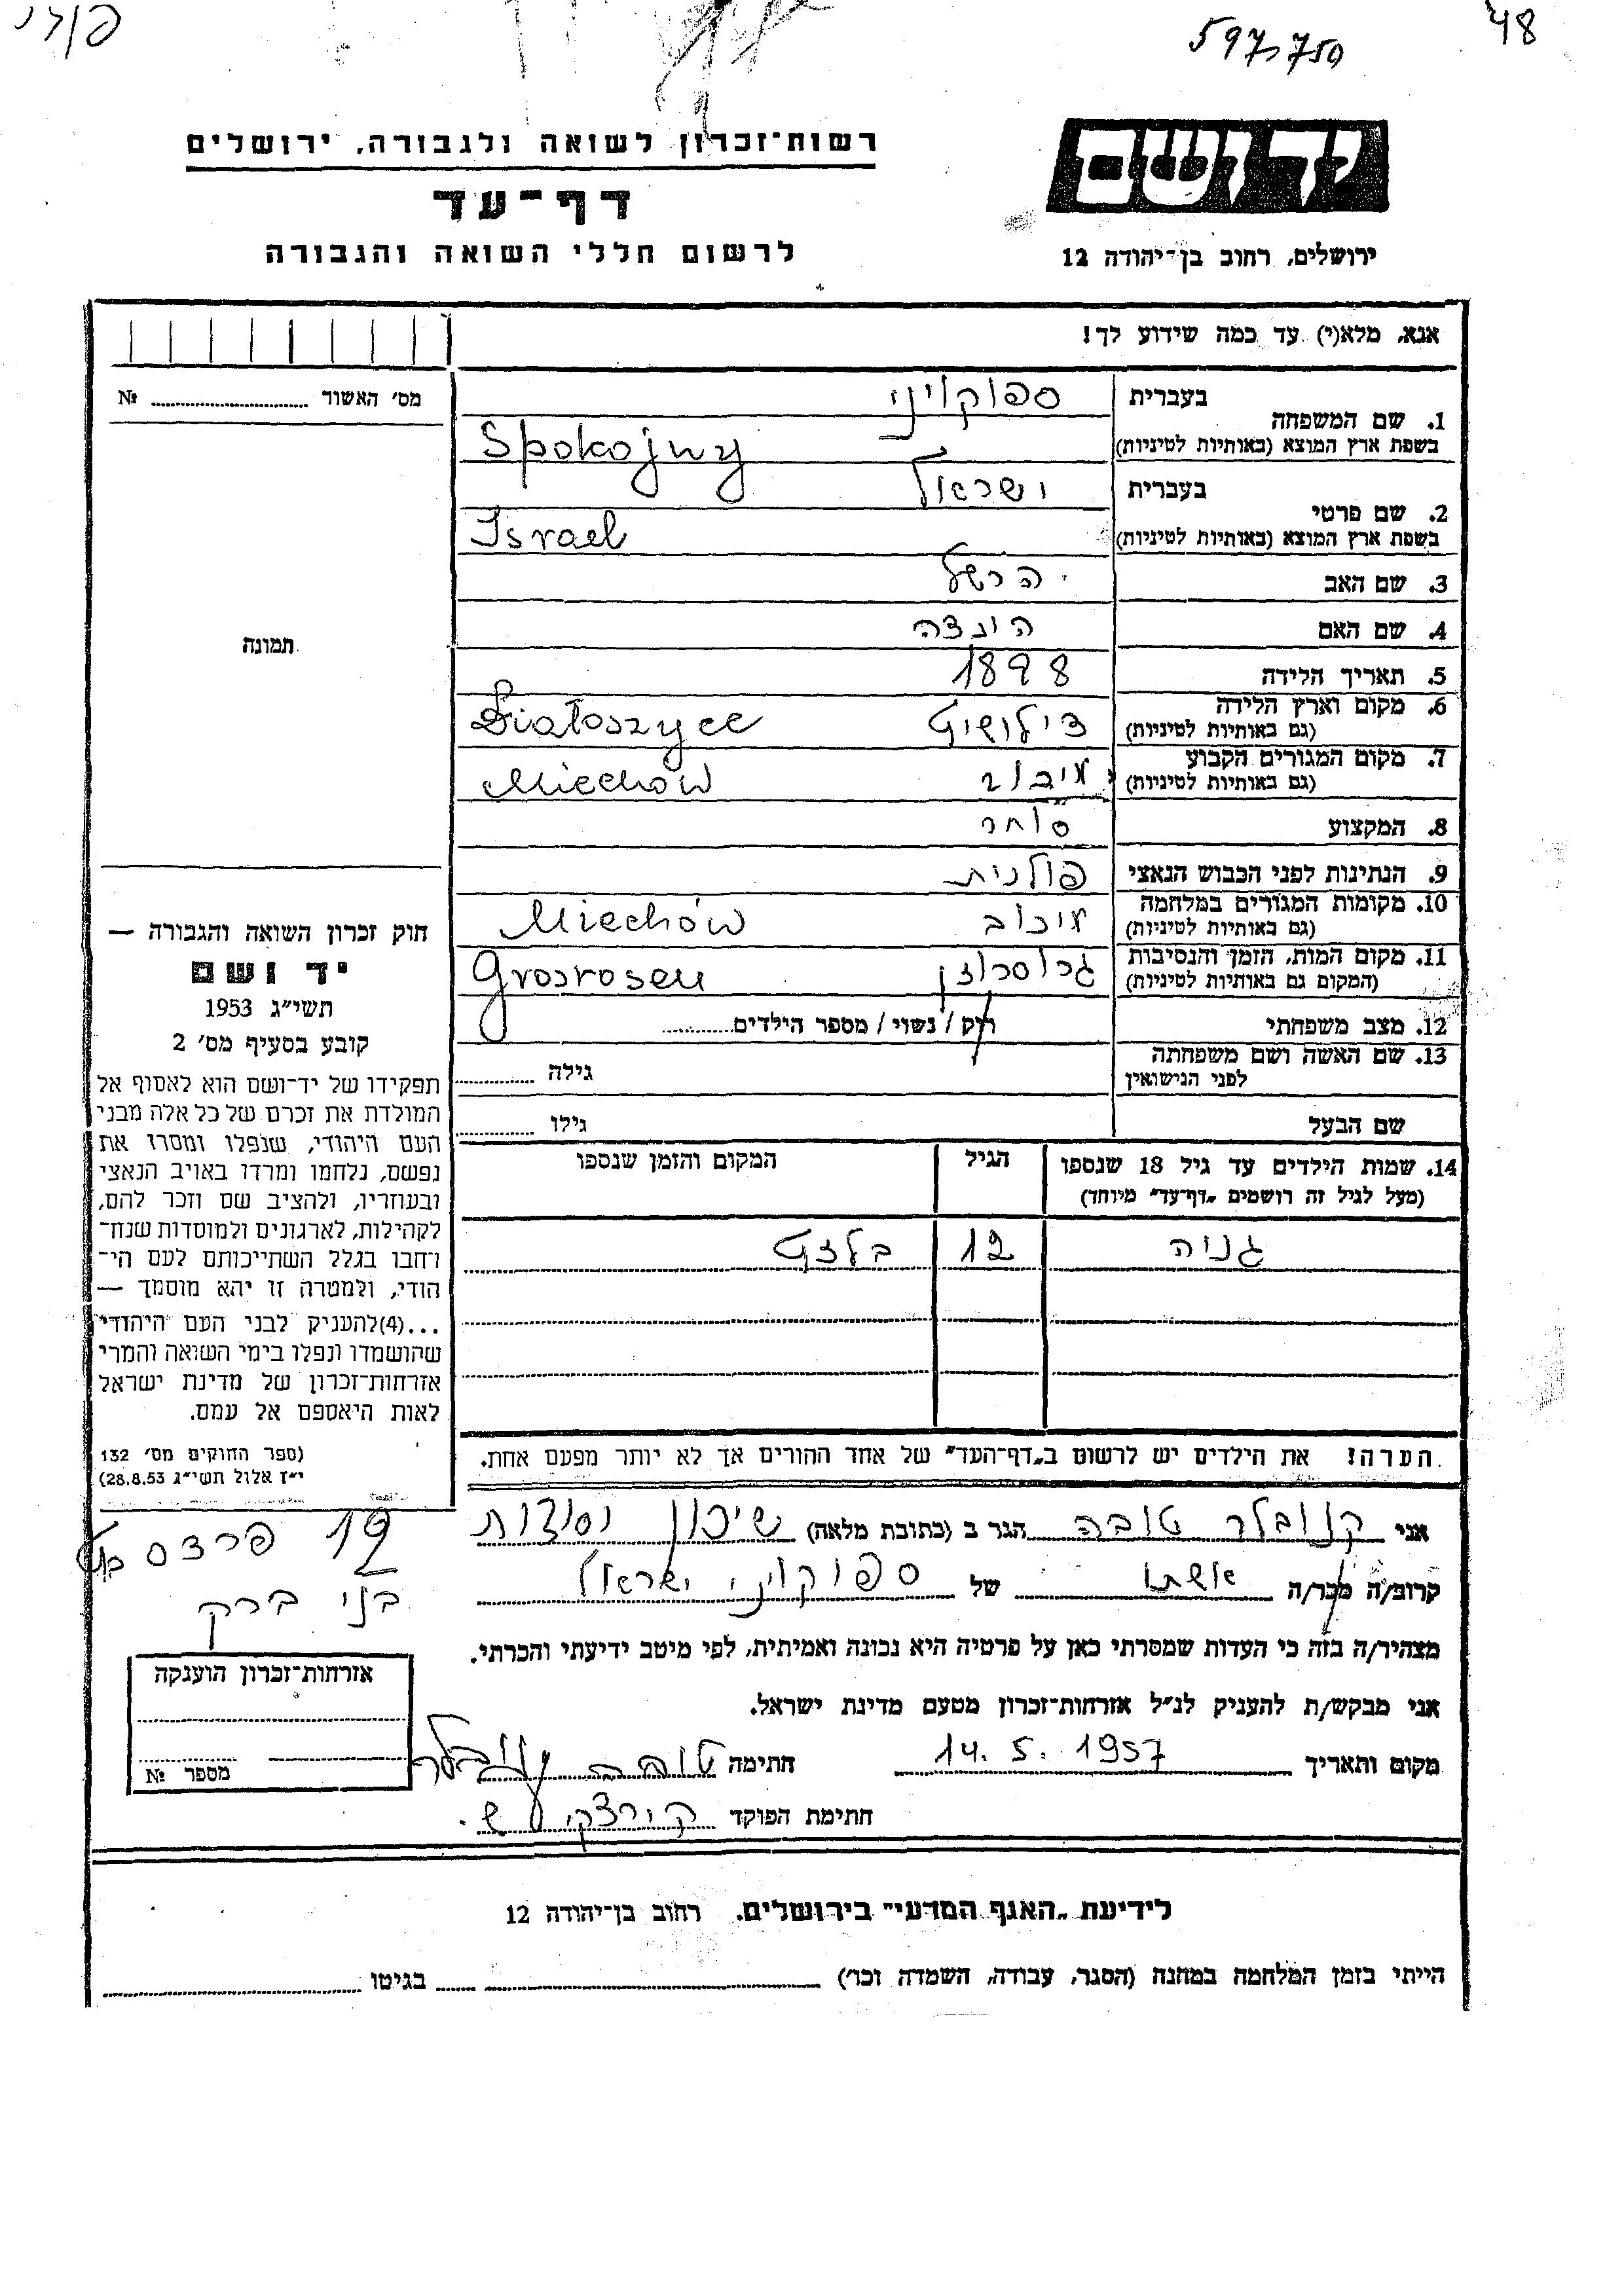 48
597,750
פולני
יד ושם
ירושלים, רחוב בן־יהודה 12
רשות־זכרון לשואה ולגבורה, ירושלים
דף־עד
לרשום חללי השואה והגבורה
אנא, מלא(י) עד כמה שידוע לך!
מס׳ האשור № ..........
תמונה
1. שם המשפחה
בעברית ספוקויני
בשפת ארץ המוצא (באותיות לטיניות) Spokojny
2. שם פרטי
בעברית ישראל
בשפת ארץ המוצא (באותיות לטיניות) Israel
3. שם האב הרשל
4. שם האם הינצה
5. תאריך הלידה 1898
6. מקום וארץ הלידה
(גם באותיות לטיניות) Działoszyce
7. מקום המגורים הקבוע
(גם באותיות לטיניות) Miechów
8. המקצוע סוחר
9. הנתינות לפני הכבוש הנאצי פולנית
10. מקומות המגורים במלחמה
(גם באותיות לטיניות) מיכוב Miechów
11. מקום המות, הזמן והנסיבות
(המקום גם באותיות לטיניות) גרוסרוזן Grosrosen
12. מצב משפחתי רוק / נשוי / מספר הילדים..........
13. שם האשה ושם משפחתה
לפני הנישואין גילה ..........
שם הבעל גילו ..........
14. שמות הילדים עד גיל 18 שנספו הגיל המקום והזמן שנספו
(מעל לגיל זה רושמים „דף־עד" מיוחד)
גניה 12 בלזץ
הערה! את הילדים יש לרשום ב„דף־העד" של אחד ההורים אך לא יותר מפעם אחת.
חוק זכרון השואה והגבורה —
יד ושם
תשי״ג 1953
קובע בסעיף מס׳ 2
תפקידו של יד־ושם הוא לאסוף אל
המולדת את זכרם של כל אלה מבני
העם היהודי, שנפלו ומסרו את
נפשם, נלחמו ומרדו באויב הנאצי
ובעוזריו, ולהציב שם וזכר להם,
לקהילות, לארגונים ולמוסדות שנח־
רחבו בגלל השתייכותם לעם הי־
הודי, ולמטרה זו יהא מוסמך —
...(4)להעניק לבני העם היהודי
שהושמדו ונפלו בימי השואה והמרי
אזרחות־זכרון של מדינת ישראל
לאות היאספם אל עמם.
(ספר החוקים מס׳ 132
י״ז אלול תשי״ג 28.8.53)
אני קנובלר טובה הגר ב (כתובת מלאה) שיכון וסודות
12 פרדס כץ
בני ברק
קרוב/ה מכר/ה אשתו של ספוקויני ישראל
מצהיר/ה בזה כי העדות שמסרתי כאן על פרטיה היא נכונה ואמיתית, לפי מיטב ידיעתי והכרתי.
אני מבקש/ת להעניק לנ״ל אזרחות־זכרון מטעם מדינת ישראל.
מקום ותאריך 14. 5. 1957 חתימה טובה קנובלר
חתימת הפוקד
אזרחות־זכרון הוענקה
מספר №
לידיעת „האגף המדעי" בירושלים, רחוב בן־יהודה 12
הייתי בזמן המלחמה במחנה (הסגר, עבודה, השמדה וכו׳) .......... בגיטו ..........